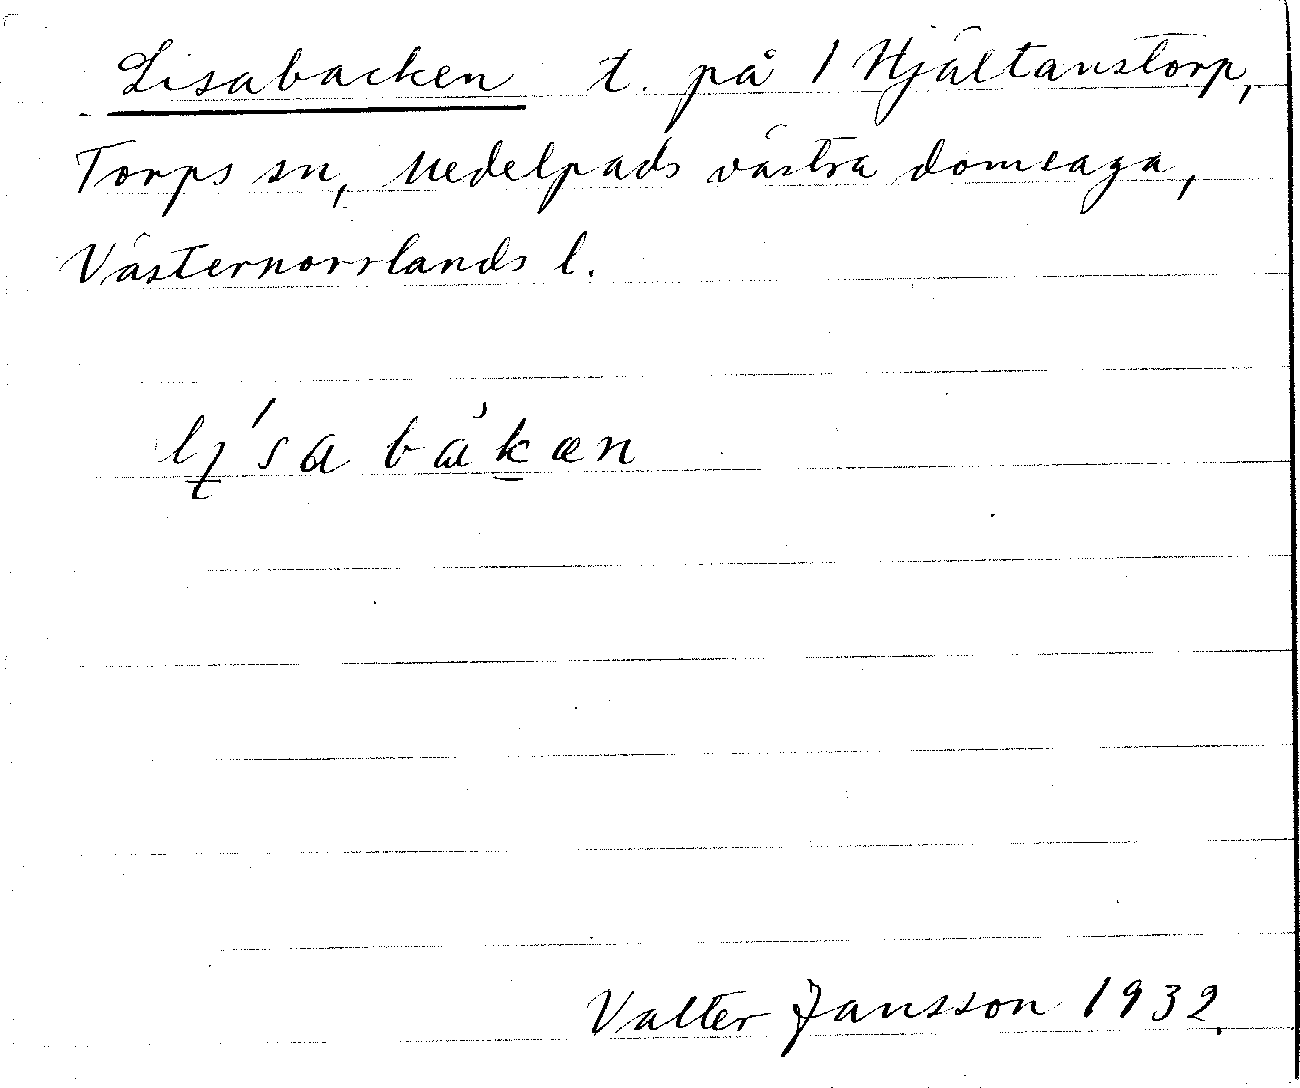 Lisabacken t. på 1 Hjältanstorp,
Torps sn, Medelpads västra domsaga,
Västernorrlands l.
Valter Jansson 1932.